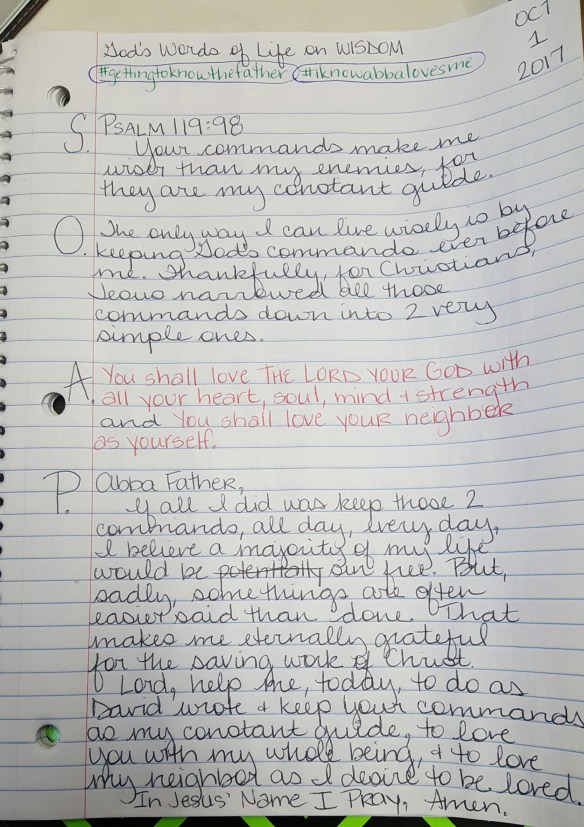 God's Words of Life on WISDOM
#gettingtoknowthefather #iknowabbalovesme
OCT
1
2017
S. PSALM 119:98
Your commands make me
wiser than my enemies, for
they are my constant guide.
O. The only way I can live wisely is by
keeping God's commands ever before
me. Thankfully, for Christians,
Jesus narrowed all those
commands down into 2 very
simple ones.
A. You shall love THE LORD YOUR GOD with
all your heart, soul, mind + strength
and You shall love your neighbor
as yourself.
P. Abba Father,
If all I did was keep those 2
commands, all day, every day,
I believe a majority of my life
would be potentially sin free. But,
sadly, some things are often
easier said than done. That
makes me eternally grateful
for the saving work of Christ.
O Lord, help me, today, to do as
David wrote + keep your commands
as my constant guide, to love
you with my whole being, + to love
my neighbor as I desire to be loved.
In Jesus' Name I Pray, Amen.